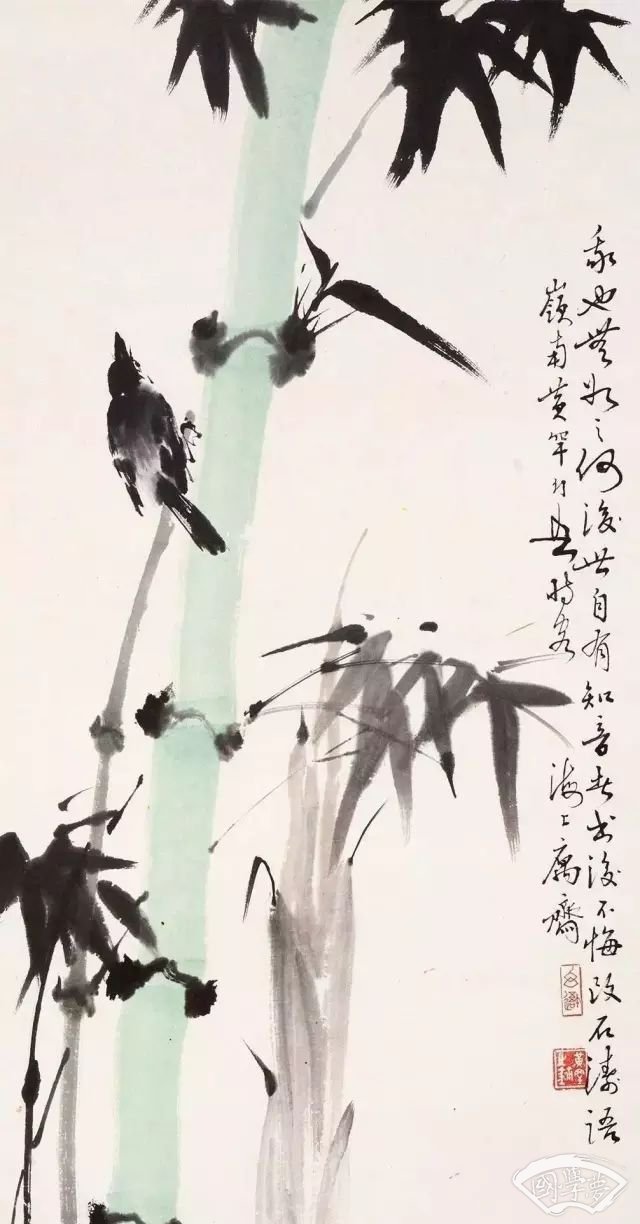 我也無如之何後世自有知音者出後不悔改石濤語
嶺南黃罕時客海上寓齋
國學夢